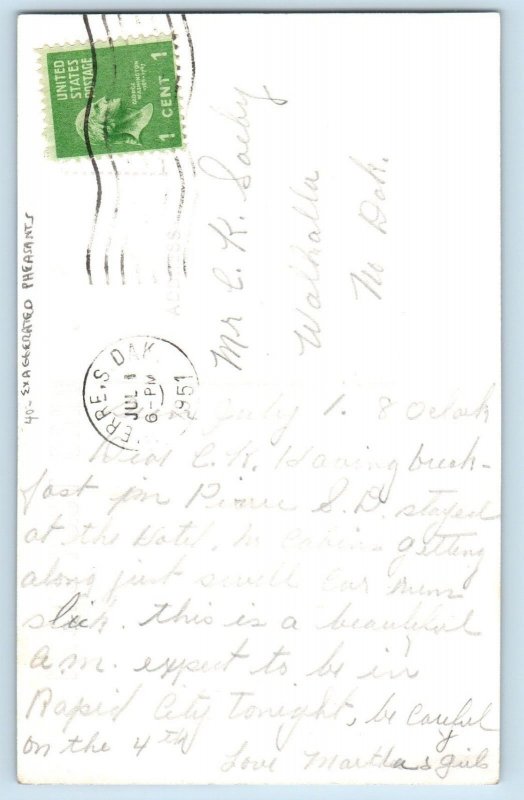 UNITED
STATES
POSTAGE
GEORGE
WASHINGTON
1 CENT 1
PIERRE, S. DAK.
JUL 1
6-PM
1951
ADDRESS
40- EXAGGERATED PHEASANTS
Mr C. K.
Walhalla
No Dak.
July 1. 8 Oclok
Dear C. K. Having break-
fast in Pierre S. D. stayed
at the Hotel. no cabin. getting
along just swell Car runs
slick. this is a beautiful
a.m. expect to be in
Rapid City tonight, be careful
on the 4th
Love Martha & girls